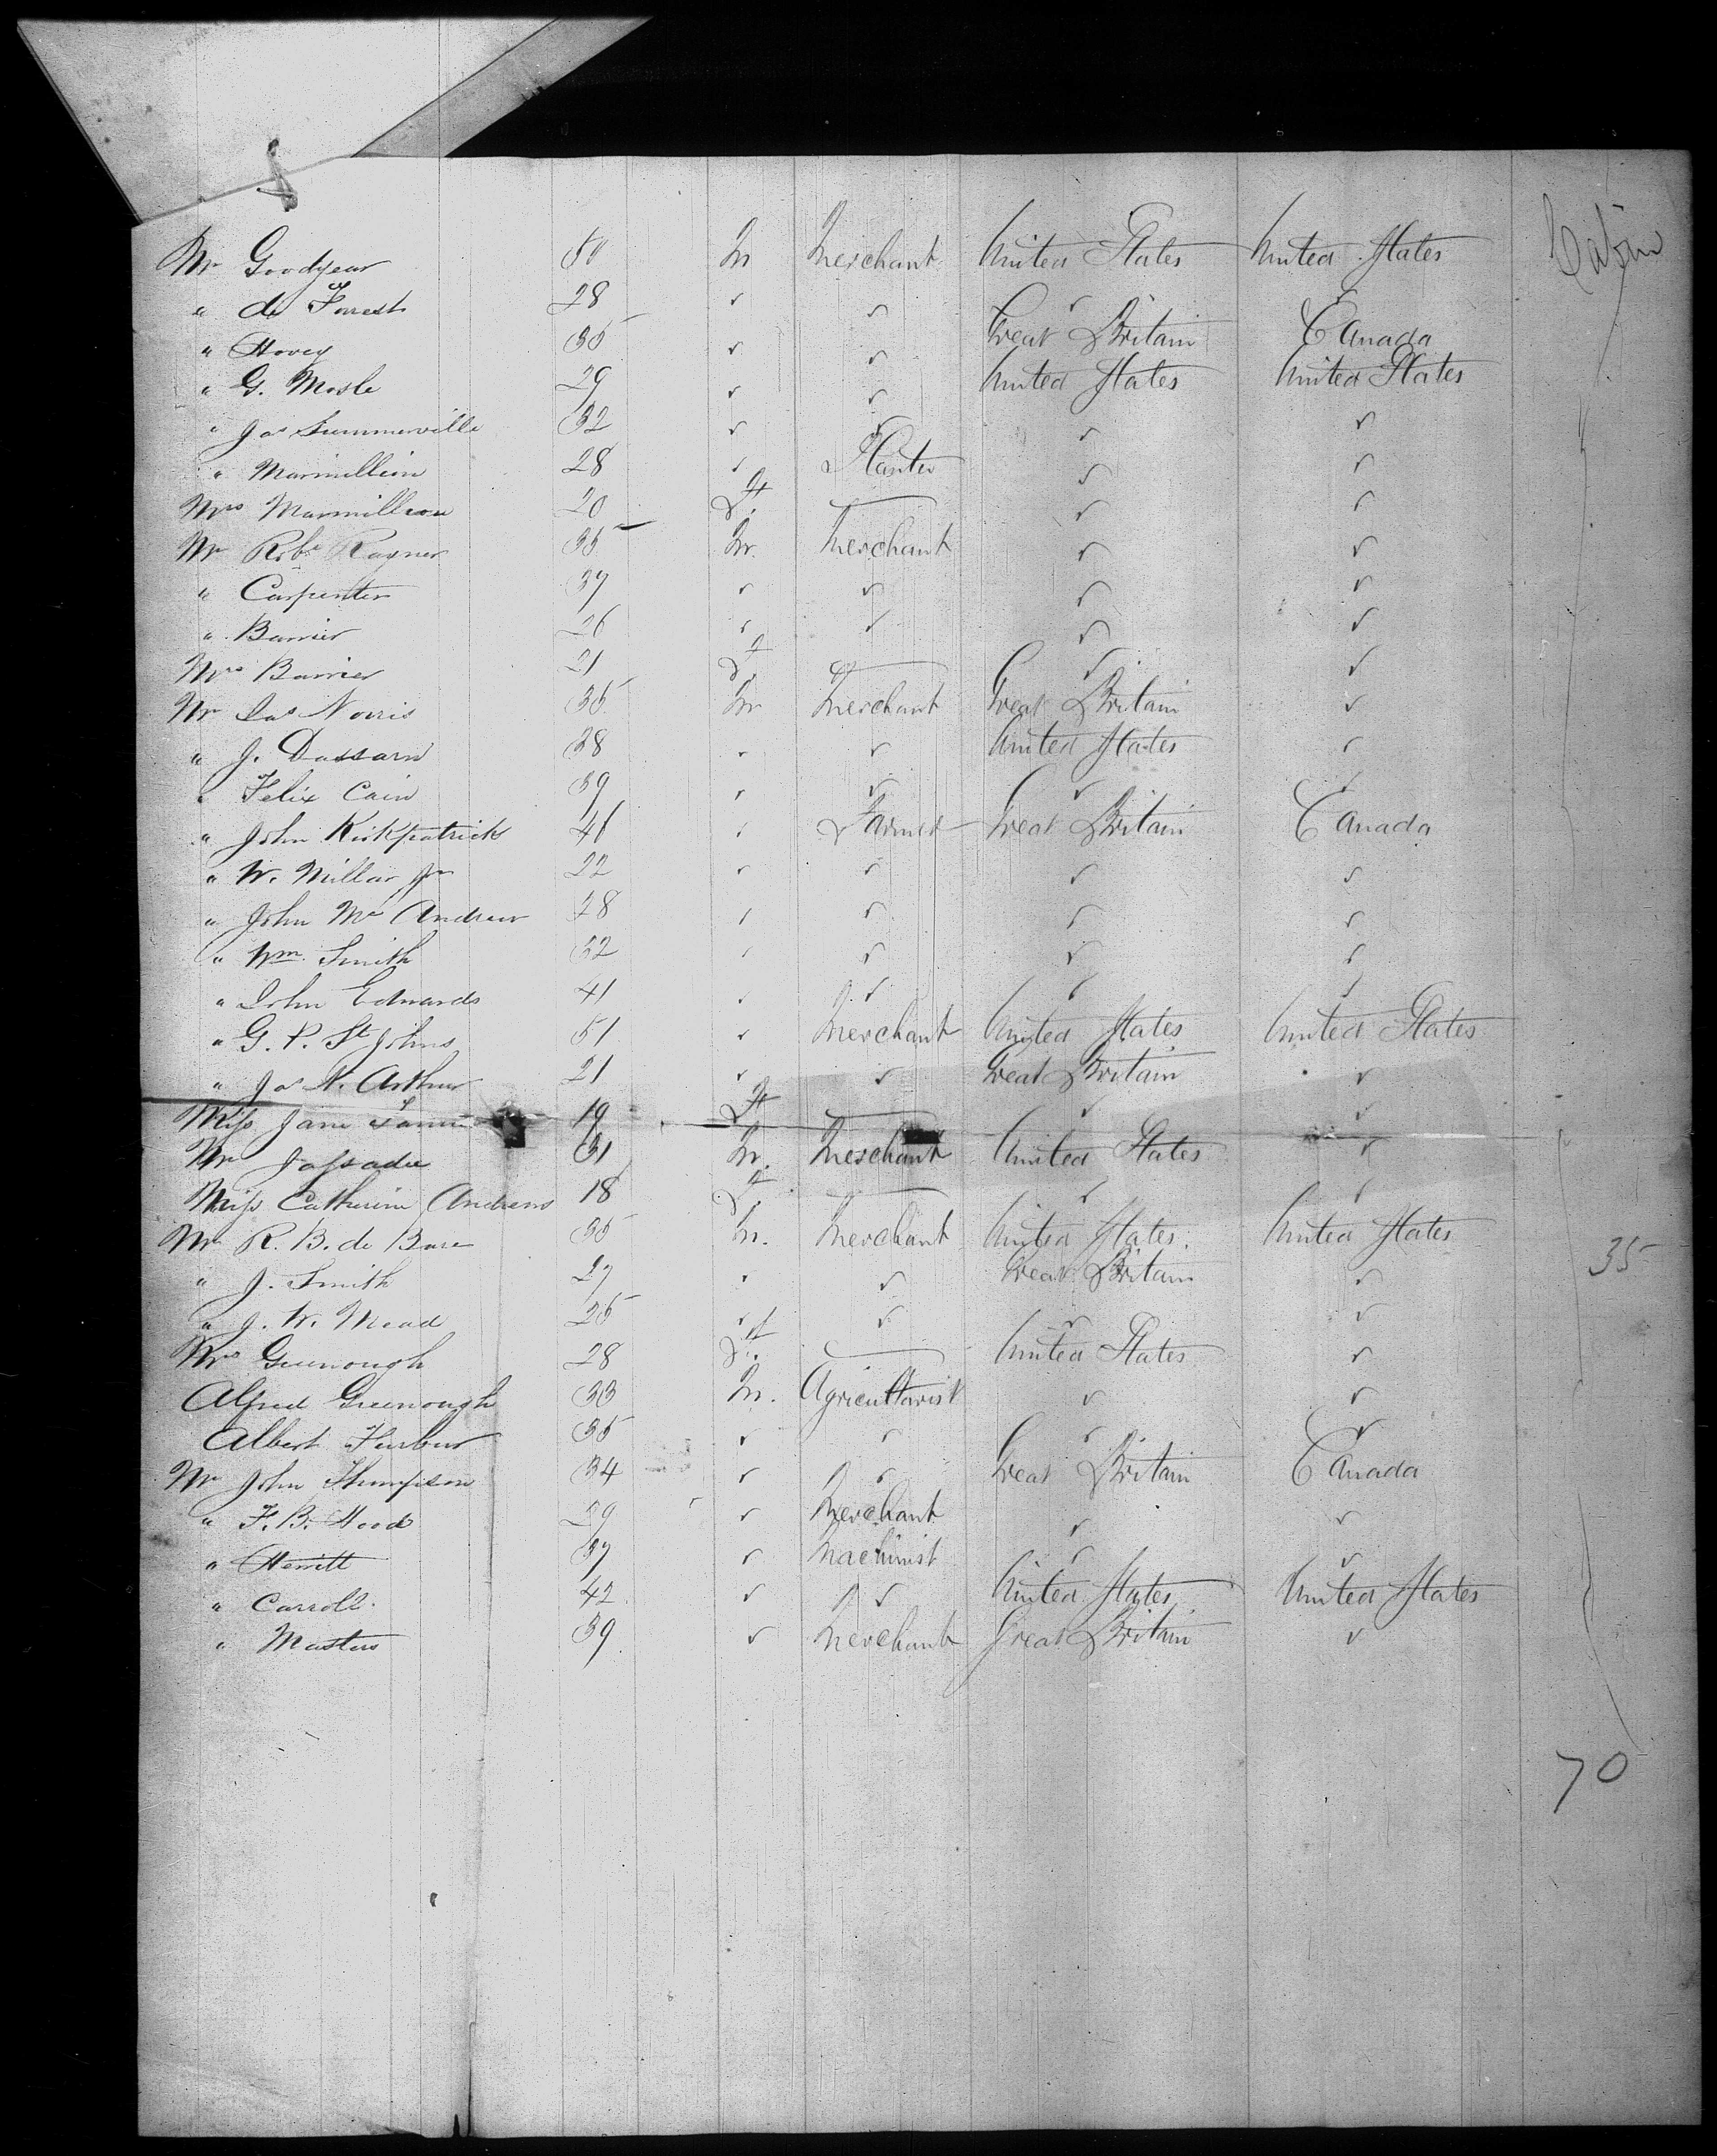 Cabin
Mr Goodyear 50 M Merchant United States United States
" de Forrest 28 ✓ ✓ ✓
" Hovey 35 ✓ ✓ Great Britain Canada
" G. Mosle 29 ✓ ✓ United States United States
" Jas Summerville 32 ✓ ✓ ✓ ✓
" Marmillion 28 ✓ Planter ✓ ✓
Mrs Marmillion 20 F. — ✓ ✓
Mr Robt Rayner 35 M. Merchant ✓ ✓
" Carpenter 37 ✓ ✓ ✓ ✓
" Barrier 26 ✓ ✓ ✓ ✓
Mrs Barrier 21 F. — ✓ ✓
Mr Jas Norris 35 M Merchant Great Britain ✓
" J. Dassarn 28 ✓ ✓ United States ✓
" Felix Cain 39 ✓ ✓ ✓ ✓
" John Kirkpatrick 41 ✓ Farmer Great Britain Canada
" W. Millar Jr 22 ✓ ✓ ✓ ✓
" John Mc Andrew 28 ✓ ✓ ✓ ✓
" Wm. Smith 52 ✓ ✓ ✓ ✓
" John Edwards 41 ✓ ✓ ✓ ✓
" G. P. St Johns 51 ✓ Merchant United States United States
" Jas N. Arthur 21 ✓ ✓ Great Britain ✓
Miss Jane 19 F — ✓ ✓
Mr 31 M. Merchant United States ✓
Miss Catherine Andrews 18 F. — ✓ ✓
Mr R. B. de Bare 35 M. Merchant United States. United States
" J. Smith 27 ✓ ✓ Great Britain ✓ 35
" J. W. Mead 25 ✓ ✓ ✓ ✓
Mrs Greenough 28 F. — United States ✓
Alfred Greenough 33 M. Agriculturist ✓ ✓
Albert Furbur 35 ✓ ✓ ✓ ✓
Mr John Thompson 34 ✓ ✓ Great Britain Canada
" F. B. Hood 29 ✓ Merchant ✓ ✓
" Herritt 37 ✓ Machinist ✓ ✓
" Carroll. 42 ✓ ✓ United States United States
" Masters 39 ✓ Merchant Great Britain ✓
70